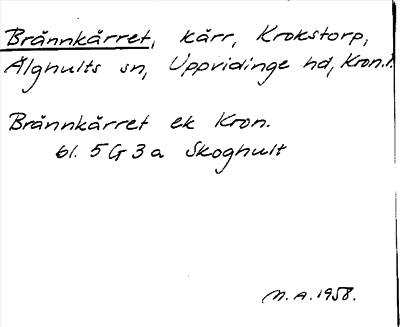 Brännkärret, kärr, Krokstorp,
Älghults sn, Uppvidinge hd, Kron.l.
Brännkärret ek Kron.
bl. 5 G 3 a Skoghult
M.A. 1958.